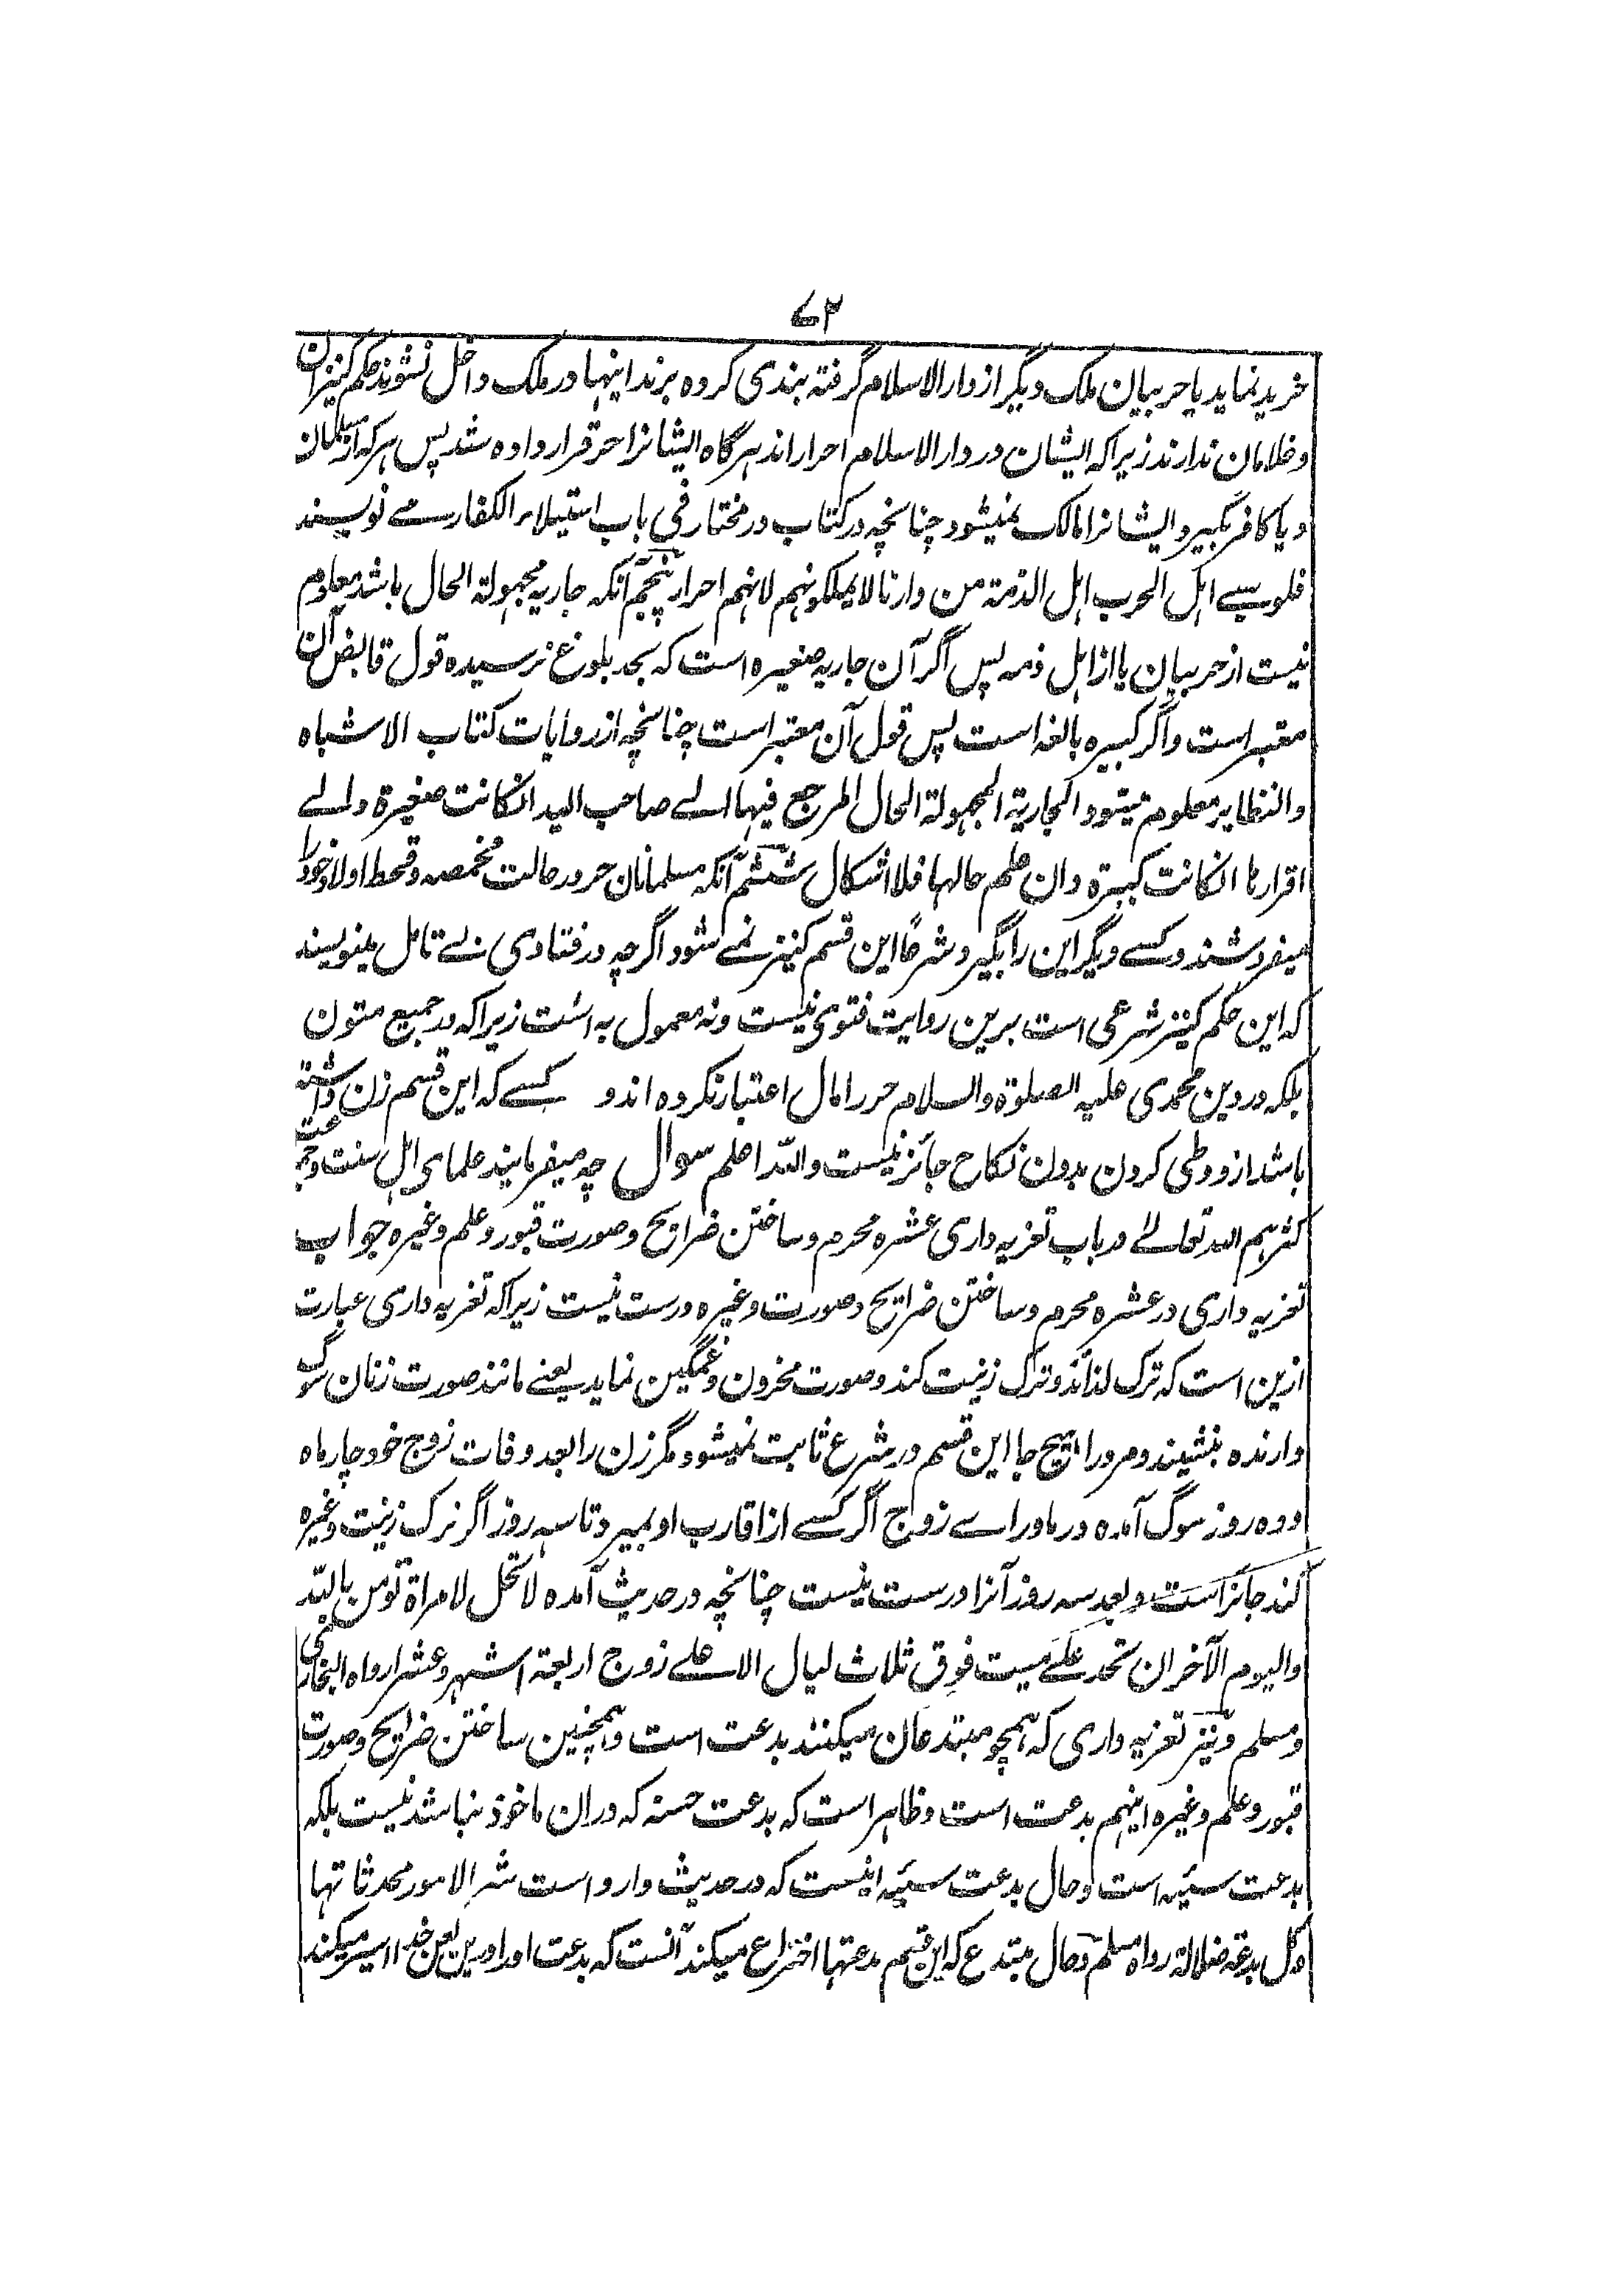 ۷۲
خرید نماید یا حربیان ملک دیگر از دار الاسلام گرفته بندی کرده برند اینها در ملک داخل نشوند حکم کنیزان
و غلامان ندارند زیرا که ایشان در دار الاسلام احرار اند هرگاه ایشانرا حر قرار داده شد پس هر که از مسلمان
و یا کافر بگیرد ایشانرا مالک نمیشود چنانچه در کتاب در مختار فی باب استیلاء الکفار مے نویسند
فلو سبے اہل الحرب اہل الذمۃ من دارنا لا یملکونہم لانہم احرار پنجم آنکہ جاریہ مجہولۃ الحال باشد معلوم
نیست از حربیان یا از اہل ذمہ پس اگر آن جاریہ صغیرہ است کہ بحد بلوغ نرسیدہ قول قابض آن
معتبر است و اگر کبیرہ بالغہ است پس قول آن معتبر است چنانچہ از روایات کتاب الاشباہ
والنظایر معلوم میشود الجاریۃ المجہولۃ الحال المرجع فیہا الے صاحب الید انکانت صغیرۃ و الے
اقرارہا انکانت کبیرۃ وان علم حالہا فلا اشکال ششم آنکہ مسلمانان حر در حالت مخمصہ و قحط اولاد خود را
میفروشند و کسے دیگر این را بگیرد شرعًا این قسم کنیز نمے شود اگرچہ در فتاوی بے تامل مینویسند
کہ این حکم کنیز شرعی است برین روایت فتوی نیست و نہ معمول بہ است زیرا کہ در جمیع متون
بلکہ در دین محمدی علیہ الصلوۃ والسلام حر را مال اعتبار نکردہ اند و کسے کہ این قسم زن داشتہ
باشد از و وطی کردن بدون نکاح جائز نیست واللہ اعلم سوال چہ میفرمایند علمای اہل سنت وجماعت
کثرہم اللہ تعالے در باب تعزیہ داری عشرہ محرم و ساختن ضرایح و صورت قبور و علم و غیرہ جواب
تعزیہ داری در عشرہ محرم و ساختن ضرایح و صورت و غیرہ درست نیست زیرا کہ تعزیہ داری عبارت
ازین است کہ ترک لذائذ و ترک زینت کند و صورت محزون و غمگین نماید یعنے مانند صورت زنان سوگ
دارندہ بنشیند و مرد را ہیچ جا این قسم در شرع ثابت نمیشود مگر زن را بعد وفات زوج خود چار ماہ
و دہ روز سوگ آمدہ در ماوراے زوج اگر کسے از اقارب او بمیرد تا سہ روز اگر ترک زینت و غیرہ
کند جائز است و بعد سہ روز آنرا درست نیست چنانچہ در حدیث آمدہ لا تحل لامراۃ تومن باللہ
والیوم الآخر ان تحد علے میت فوق ثلاث لیال الا علے زوج اربعۃ اشہر وعشرا رواہ البخاری
و مسلم و نیز تعزیہ داری کہ ہمچو مبتدعان میکنند بدعت است و ہمچنین ساختن ضرایح و صورت
قبور و علم و غیرہ اینہم بدعت است و ظاہر است کہ بدعت حسنہ کہ دران ماخوذ نباشد نیست بلکہ
بدعت سیئہ است و حال بدعت سیئہ اینست کہ در حدیث وارد است شر الامور محدثاتہا
وکل بدعۃ ضلالۃ رواہ مسلم و حال مبتدع کہ این قسم بدعتہا اختراع میکند آنست کہ بدعت او را در لعن خدا اسیر میکند